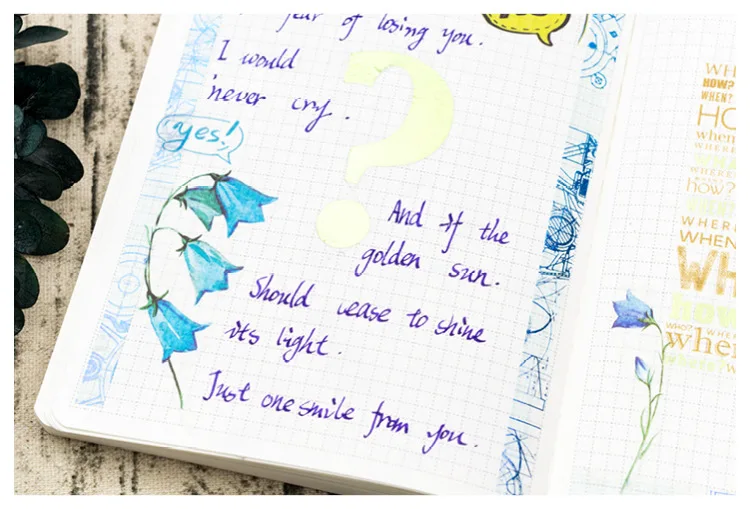 fear of losing you.
I would
never cry.
yes!
And if the
golden sun.
Should cease to shine
its light.
Just one smile from you.
?
WH
HOW?
WHEN?
HO
when
WHERE
WHERE
how?
WHERE
WHEN
WH
how
WHO?
WHERE
whe